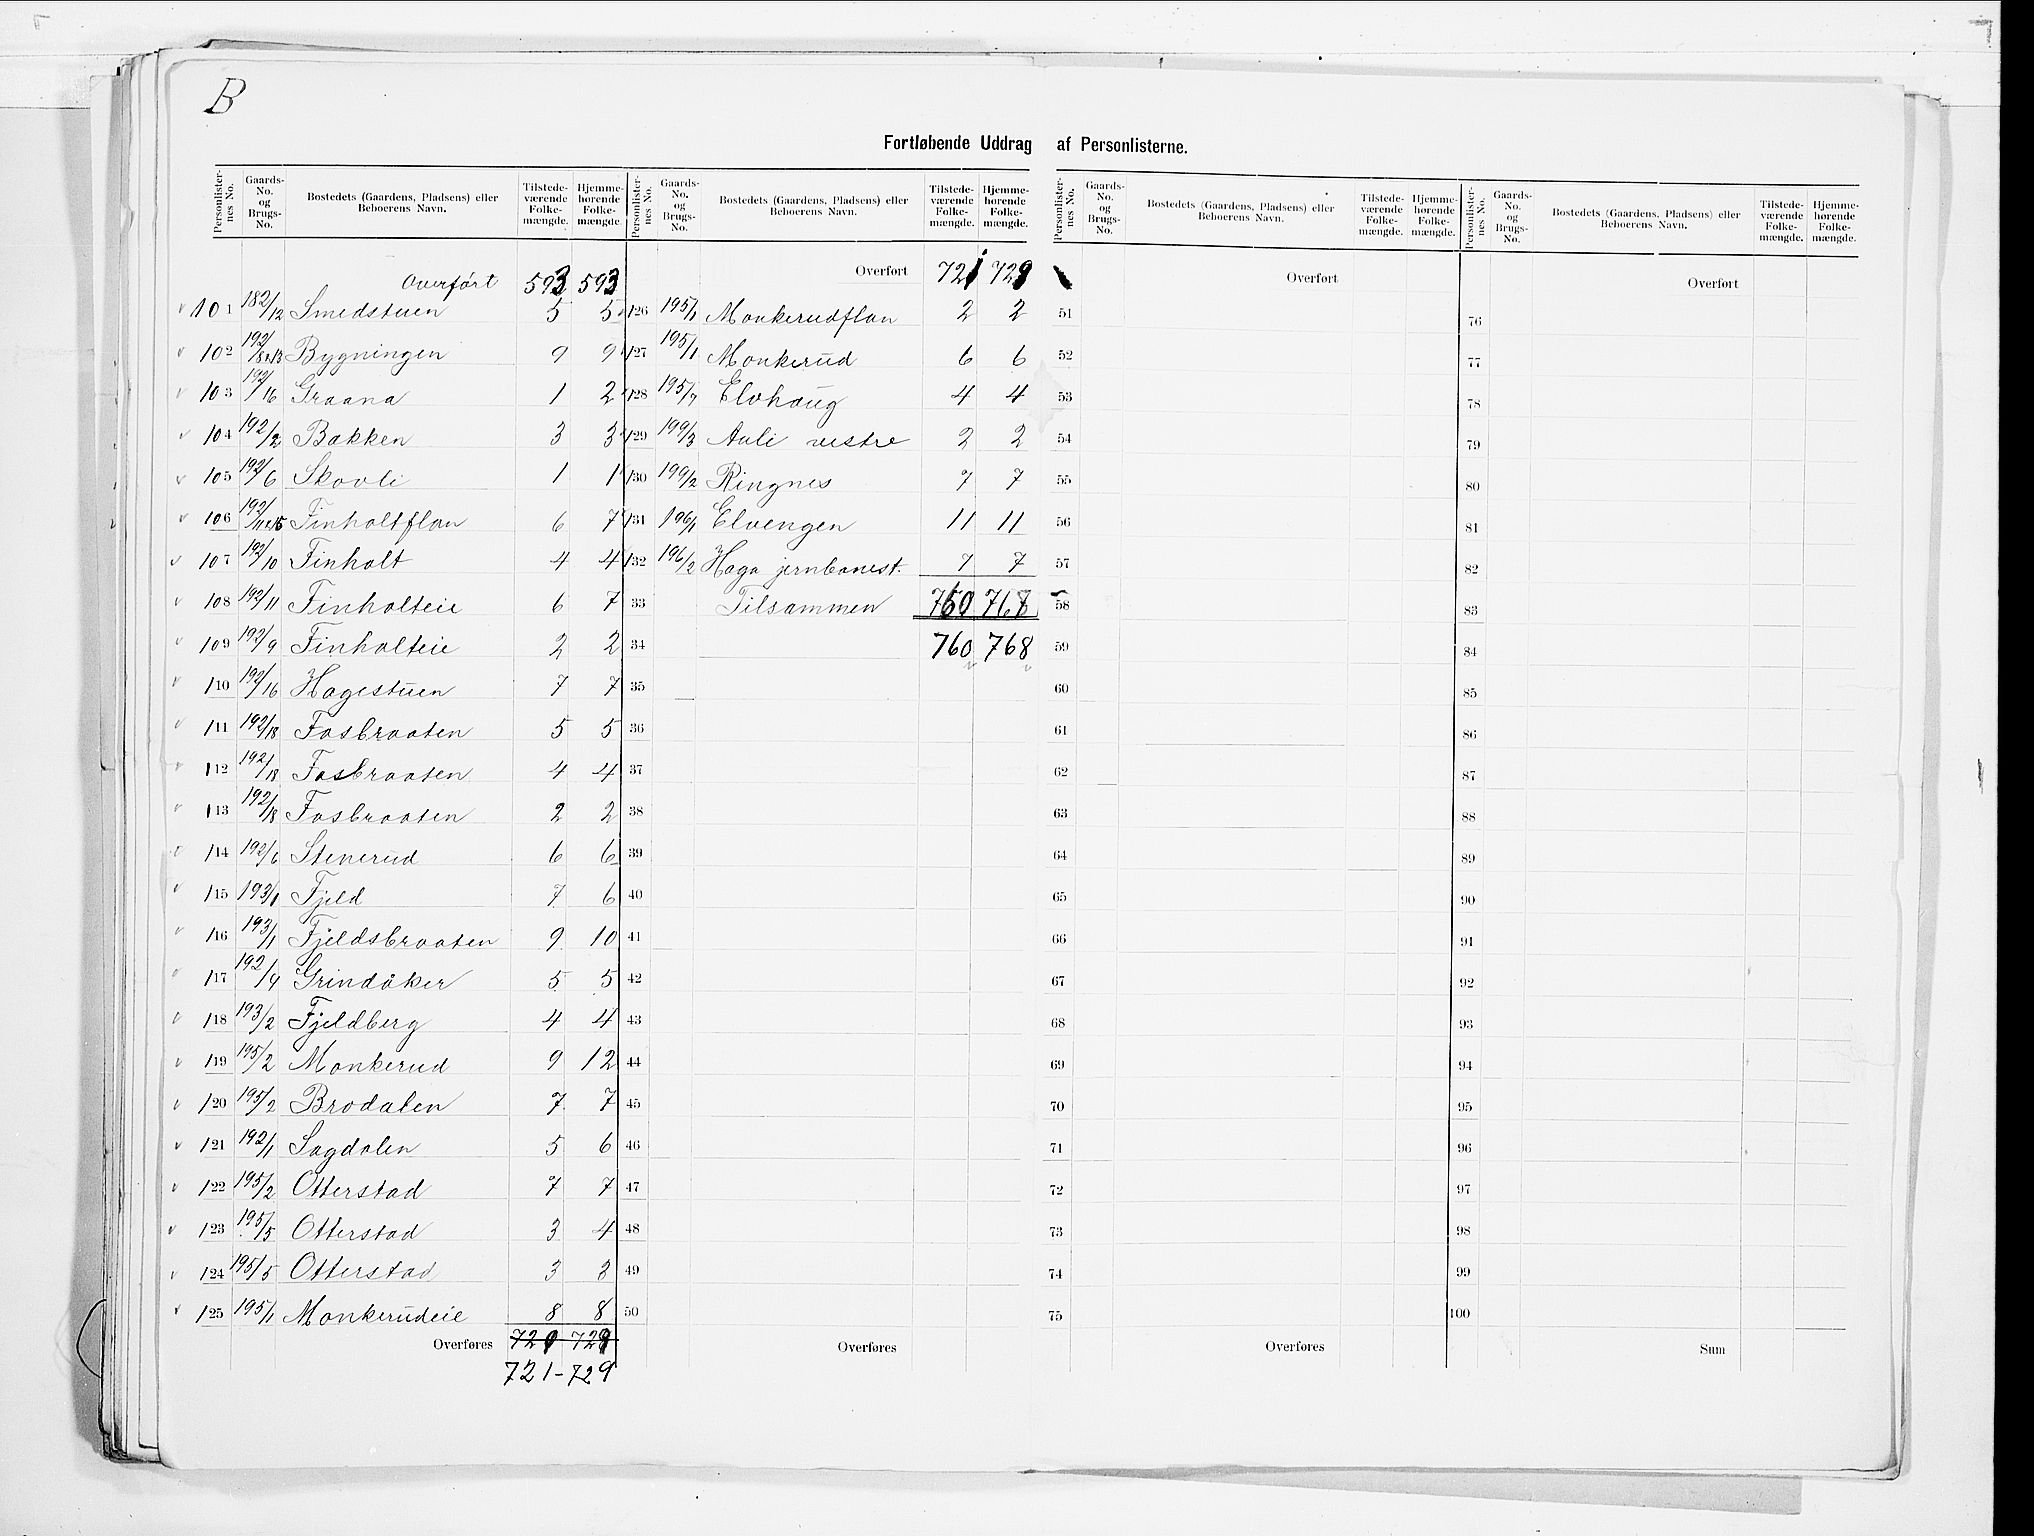 B
Fortløbende Uddrag af Personlisterne.
Personlisternes No. Gaards-No. og Brugs-No. Bostedets (Gaardens, Pladsens) eller Beboerens Navn. Tilstedeværende Folkemængde. Hjemmehørende Folkemængde.
Overført 593 593
101 182/12 Smedstuen 5 5
102 192/8&13 Bygningen 9 9
103 192/16 Graana 1 2
104 192/2 Bakken 3 3
105 192/6 Skovli 1 1
106 192/11&15 Finholtflan 6 7
107 192/10 Finholt 4 4
108 192/11 Finholteie 6 7
109 192/9 Finholteie 2 2
110 192/16 Hagestuen 7 7
111 192/18 Fosbraaten 5 5
112 192/18 Fosbraaten 4 4
113 192/18 Fosbraaten 2 2
114 192/6 Stenerud 6 6
115 193/1 Fjeld 7 6
116 193/1 Fjeldsbraaten 9 10
117 192/4 Grindåker 5 5
118 193/2 Fjeldberg 4 4
119 195/2 Monkerud 9 12
120 195/2 Brodalen 7 7
121 192/1 Sagdalen 5 6
122 195/2 Otterstad 7 7
123 195/5 Otterstad 3 4
124 195/5 Otterstad 3 3
125 195/1 Monkerudeie 8 8
Overføres 721 729
721-729
Personlisternes No. Gaards-No. og Brugs-No. Bostedets (Gaardens, Pladsens) eller Beboerens Navn. Tilstedeværende Folkemængde. Hjemmehørende Folkemængde.
Overført 721 729
126 195/1 Monkerudflan 2 2
127 195/1 Monkerud 6 6
128 195/7 Elvhaug 4 4
129 199/3 Auli vestre 2 2
130 199/2 Ringnes 7 7
131 196/1 Elvengen 11 11
132 196/2 Haga jernbanest. 7 7
33 Tilsammen 760 768
34 760 768
35
36
37
38
39
40
41
42
43
44
45
46
47
48
49
50
Overføres
Personlisternes No. Gaards-No. og Brugs-No. Bostedets (Gaardens, Pladsens) eller Beboerens Navn. Tilstedeværende Folkemængde. Hjemmehørende Folkemængde.
Overført
51
52
53
54
55
56
57
58
59
60
61
62
63
64
65
66
67
68
69
70
71
72
73
74
75
Overføres
Personlisternes No. Gaards-No. og Brugs-No. Bostedets (Gaardens, Pladsens) eller Beboerens Navn. Tilstedeværende Folkemængde. Hjemmehørende Folkemængde.
Overført
76
77
78
79
80
81
82
83
84
85
86
87
88
89
90
91
92
93
94
95
96
97
98
99
100
Sum